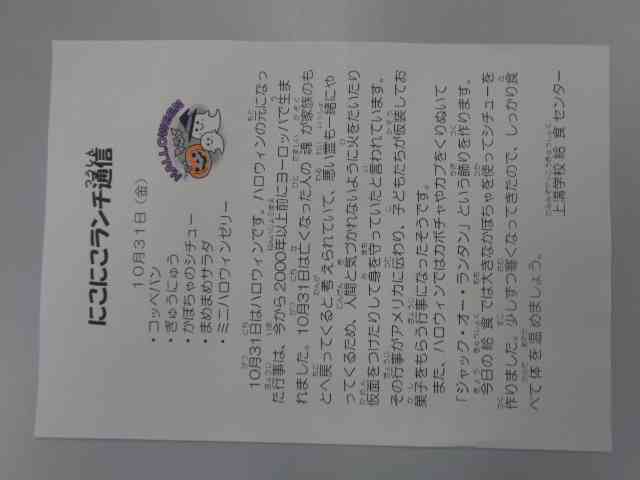 にこにこランチ通信
10月31日（金）
HALLOWEEN
・コッペパン
・ぎゅうにゅう
・かぼちゃのシチュー
・まめまめサラダ
・ミニハロウィンゼリー
10月31日はハロウィンです。ハロウィンの元になっ
た行事は、今から2000年以上前にヨーロッパで生ま
れました。10月31日は亡くなった人の 魂 が家族のも
とへ戻ってくると考えられていて、悪い霊も一緒にや
ってくるため、人間と気づかれないように火をたいたり
仮面をつけたりして身を守っていたと言われています。
その行事がアメリカに伝わり、子どもたちが仮装してお
菓子をもらう行事になったそうです。
また、ハロウィンではカボチャやカブをくりぬいて
「ジャック・オー・ランタン」という飾りを作ります。
今日の給食では大きなかぼちゃを使ってシチューを
作りました。少しずつ寒くなってきたので、しっかり食
べて体を温めましょう。
学校給食センター